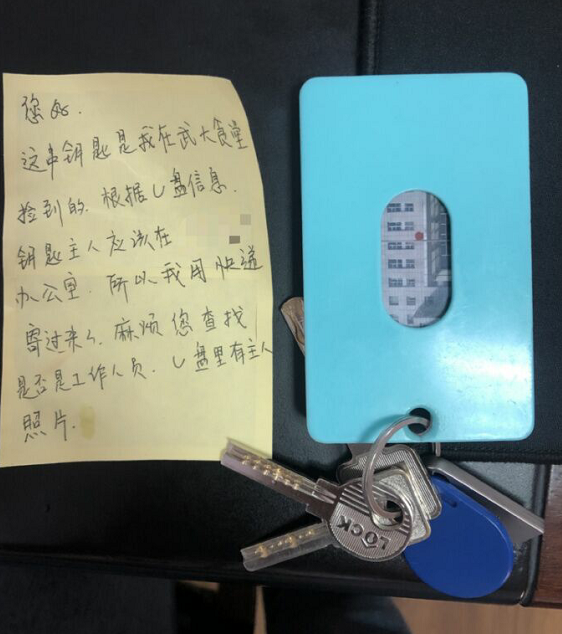 您好.
这串钥匙是我在武大食堂
捡到的. 根据U盘信息.
钥匙主人应该在
办公室. 所以我用快递
寄过来了. 麻烦您查找
是否是工作人员. U盘里有主人
照片.
LOCK